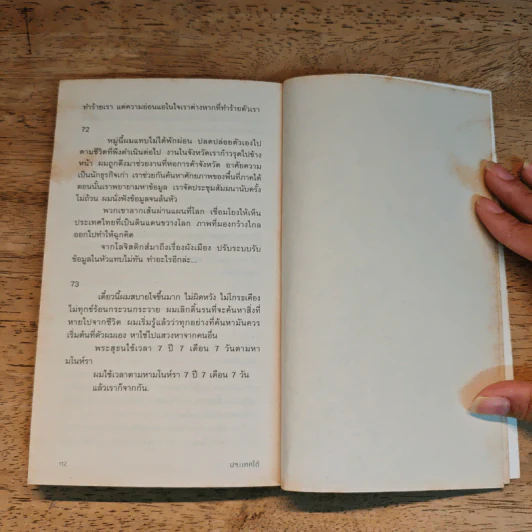 ทำร้ายเรา แต่ความอ่อนแอในใจเราต่างหากที่ทำร้ายตัวเรา
72
หมู่นี้ผมแทบไม่ได้พักผ่อน ปลดปล่อยตัวเองไป
ตามชีวิตที่พึงดำเนินต่อไป งานในจังหวัดเราก้าวรุดไปข้าง
หน้า ผมถูกดึงมาช่วยงานที่หอการค้าจังหวัด อาศัยความ
เป็นนักธุรกิจเก่า เราช่วยกันค้นหาศักยภาพของพื้นที่ภาคใต้
ตอนนั้นเราพยายามหาข้อมูล เราจัดประชุมสัมมนานับครั้ง
ไม่ถ้วน ผมนั่งฟังข้อมูลจนล้นหัว
พวกเขาลากเส้นผ่านแผนที่โลก เชื่อมโยงให้เห็น
ประเทศไทยที่เป็นดินแดนขวางโลก ภาพที่มองกว้างไกล
ออกไปทำให้ฉุกคิด
จากโลจิสติกส์มาถึงเรื่องผังเมือง ปรับระบบรับ
ข้อมูลในหัวแทบไม่ทัน ทำอะไรอีกล่ะ...
73
เดี๋ยวนี้ผมสบายใจขึ้นมาก ไม่ผิดหวัง ไม่โกรธเคือง
ไม่ทุกข์ร้อนกระวนกระวาย ผมเลิกดิ้นรนที่จะค้นหาสิ่งที่
หายไปจากชีวิต ผมเริ่มรู้แล้วว่าทุกอย่างที่ค้นหามันควร
เริ่มต้นที่ตัวผมเอง หาใช่ไปแสวงหาจากคนอื่น
พระสุธนใช้เวลา 7 ปี 7 เดือน 7 วันตามหา
มโนห์รา
ผมใช้เวลาตามหามโนห์รา 7 ปี 7 เดือน 7 วัน
แล้วเราก็จากกัน.
112
ประเทศใต้